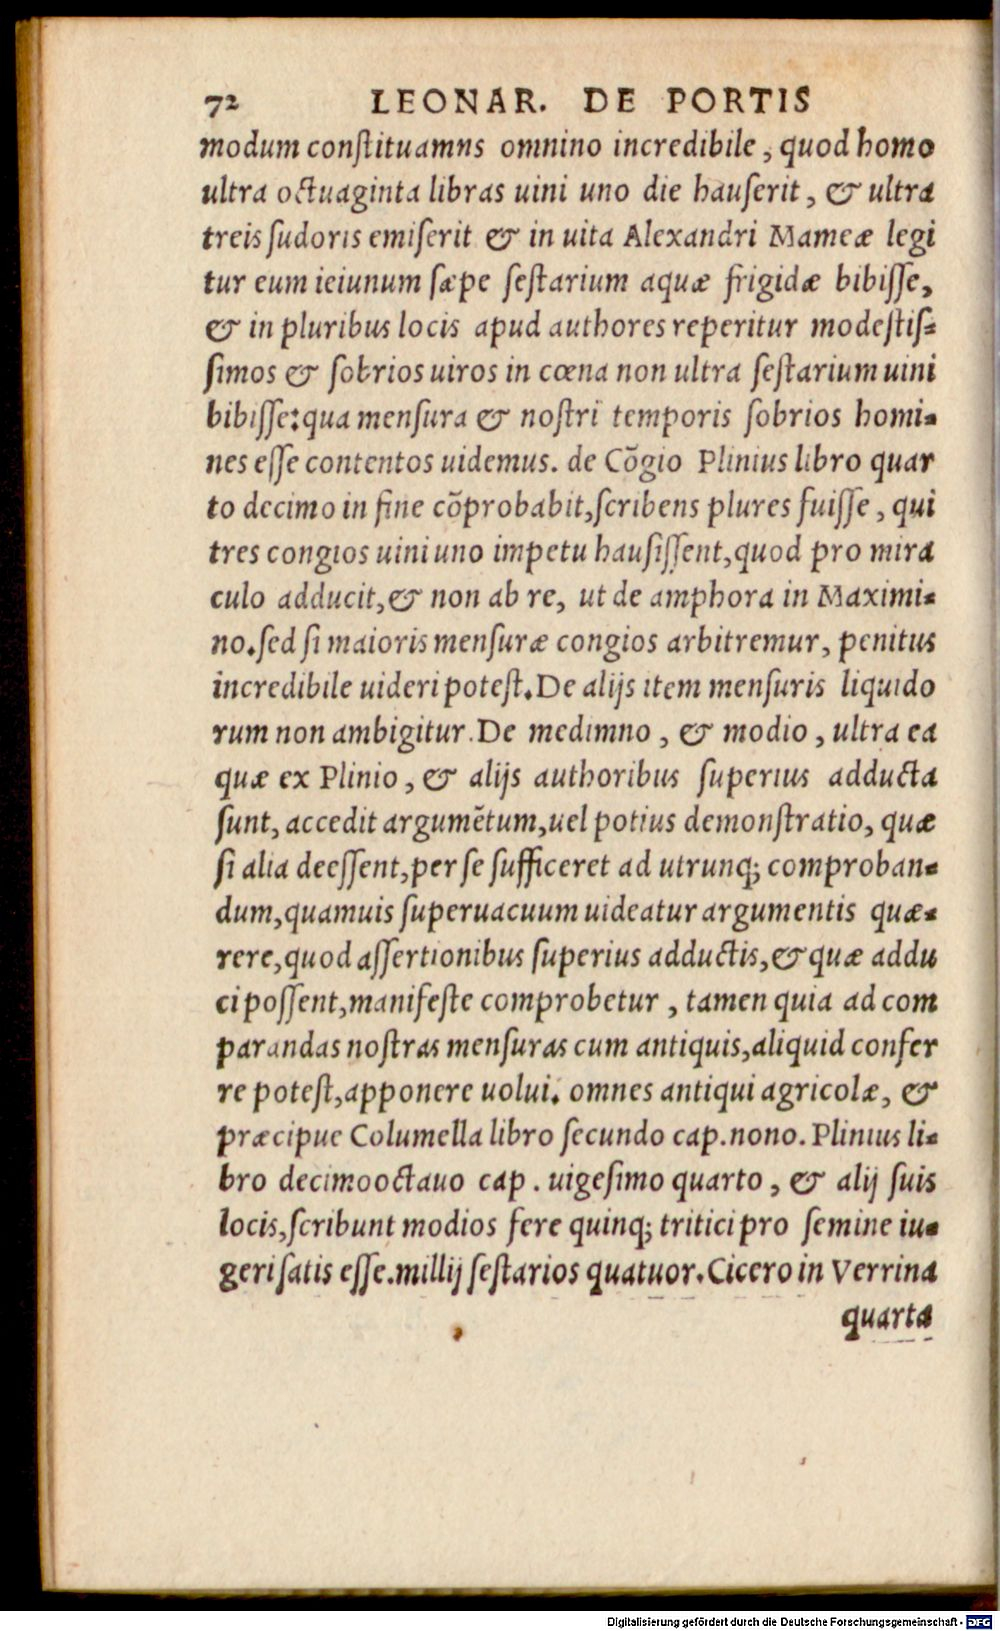 72 LEONAR. DE PORTIS
modum conſtituamns omnino incredibile, quod homo
ultra octuaginta libras uini uno die hauſerit, & ultra
treis ſudoris emiſerit & in uita Alexandri Mameæ legi
tur eum ieiunum ſæpe ſeſtarium aquæ frigidæ bibiſſe,
& in pluribus locis apud authores reperitur modeſtiſ-
ſimos & ſobrios uiros in cœna non ultra ſeſtarium uini
bibiſſe: qua menſura & noſtri temporis ſobrios homi-
nes eſſe contentos uidemus. de Cõgio Plinius libro quar
to decimo in fine cõprobabit, ſcribens plures fuiſſe, qui
tres congios uini uno impetu hauſiſſent, quod pro mira
culo adducit, & non ab re, ut de amphora in Maximi-
no. ſed ſi maioris menſuræ congios arbitremur, penitus
incredibile uideri poteſt. De alijs item menſuris liquido
rum non ambigitur. De medimno, & modio, ultra ea
quæ ex Plinio, & alijs authoribus ſuperius adducta
ſunt, accedit argumẽtum, uel potius demonſtratio, quæ
ſi alia deeſſent, per ſe ſufficeret ad utrunq; comproban-
dum, quamuis ſuperuacuum uideatur argumentis quæ-
rere, quod aſſertionibus ſuperius adductis, & quæ addu
ci poſſent, manifeſte comprobetur, tamen quia ad com
parandas noſtras menſuras cum antiquis, aliquid confer
re poteſt, apponere uolui. omnes antiqui agricolæ, &
præcipue Columella libro ſecundo cap. nono. Plinius li-
bro decimooctauo cap. uigeſimo quarto, & alij ſuis
locis, ſcribunt modios fere quinq; tritici pro ſemine iu-
geri ſatis eſſe. millij ſeſtarios quatuor. Cicero in Verrina
quarta
Digitalisierung gefördert durch die Deutsche Forschungsgemeinschaft - DFG